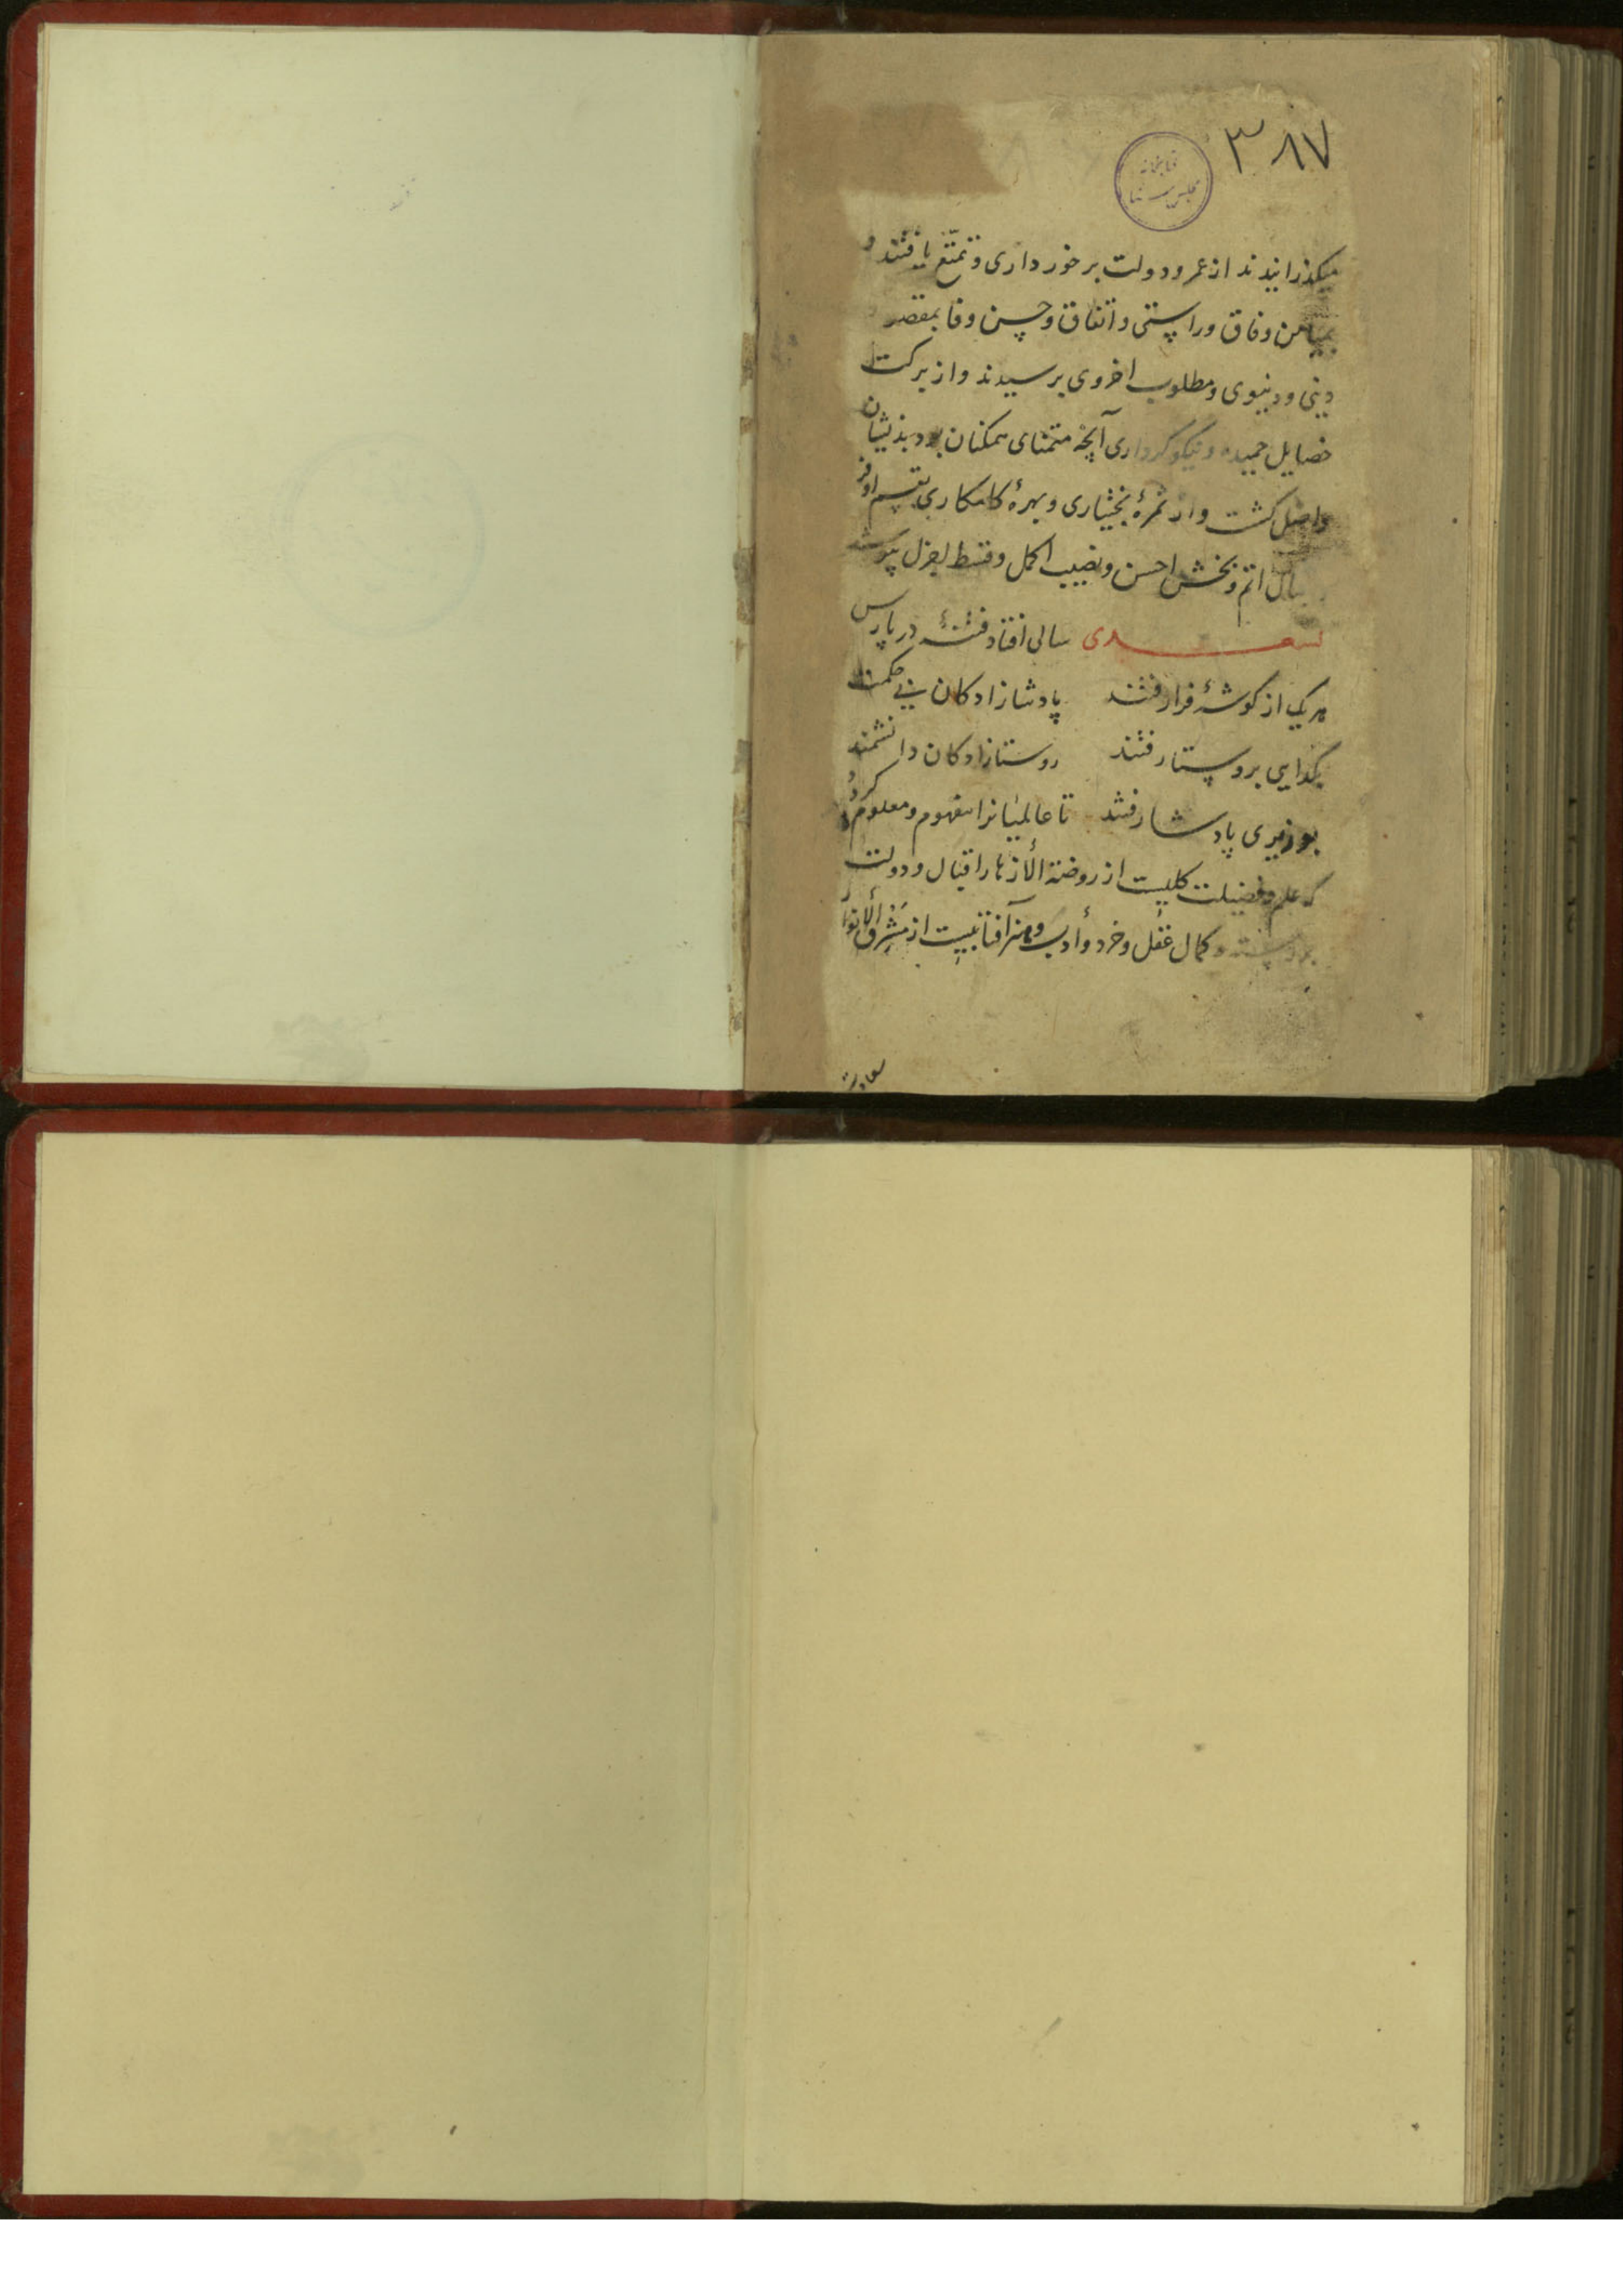 ۳۸۷
کتابخانه
مجلس سنا
میکذرانیدند از عمر و دولت برخورداری و تمتّع یافتند و
بمیامن وفاق و راستی و اتفاق و حسن وفا بمقصد
دینی و دنیوی و مطلوب اخروی برسیدند و از برکت
خصایل حمیده و نیکوکرداری آنچه متمنای همکنان بود بذیشان
واصل کشت و از ثمرهٔ بختیاری و بهرهٔ کامکاری بقسم اوفر
اتم و بخش احسن و نصیب اکمل و قسط اجزل
سعدی سالی افتاد فتنهٔ در پارس
هر یک از کوشهٔ فرا رفتند پادشازادکان بی حکمت
بکدایی بروستا رفتند روستازادکان دانشمند
بوزیری پادشا رفتند تا عالمیانرا مفهوم و معلوم کردد
که علم و فضیلت کلیست از روضة الأزهار اقبال و دولت
بر رسته و کمال عقل و خرد و أدب و هنر آفتابیست از مشرق الأنوار
سعادت